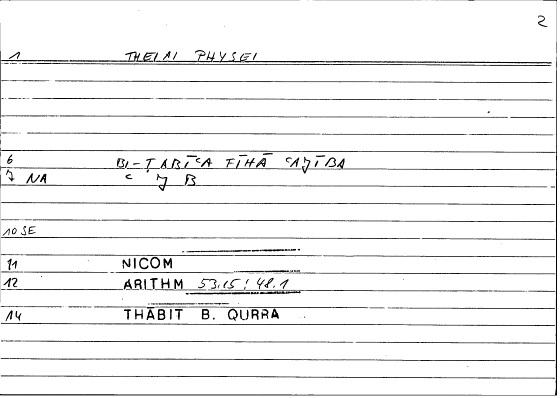 2
1 THEIAI PHYSEI
6 BI-ṬABĪʿA FĪHĀ ʿAǦĪBA
7 NA ʿ Ǧ B
10 SE
11 NICOM
12 ARITHM 53.15; 48.1
14 THĀBIT B. QURRA